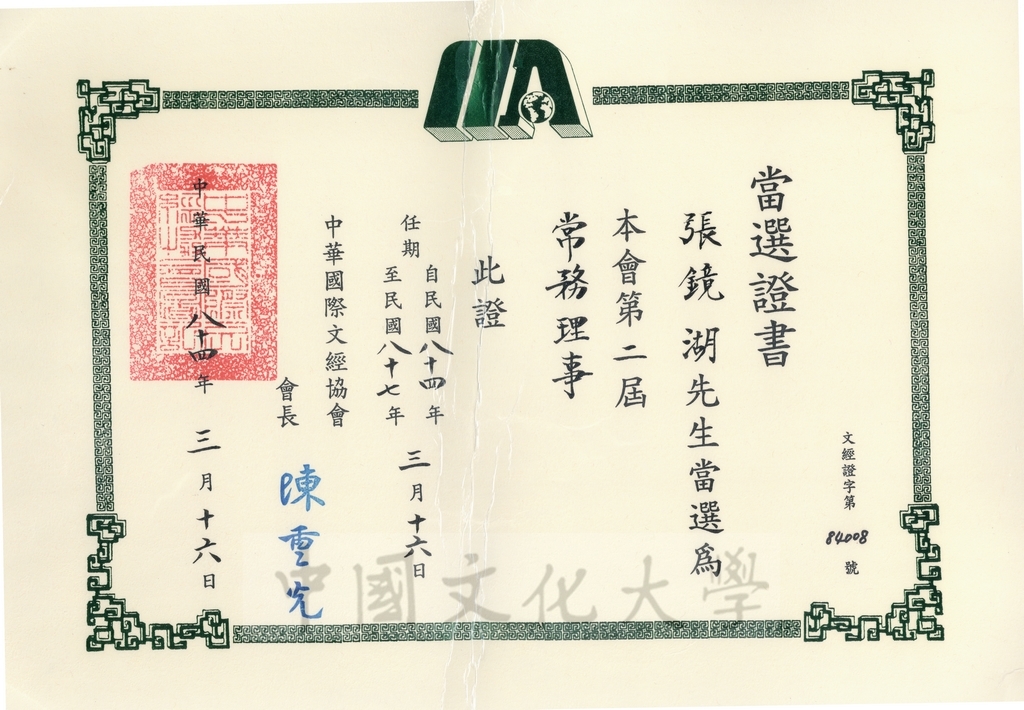 當選證書
文經證字第84008號
張鏡湖先生當選為
本會第二屆
常務理事
此證
任期
自民國八十四年
至民國八十七年
三月十六日
中華國際文經協會
會長 陳雲先
中華民國八十四年三月十六日
中國文化大學